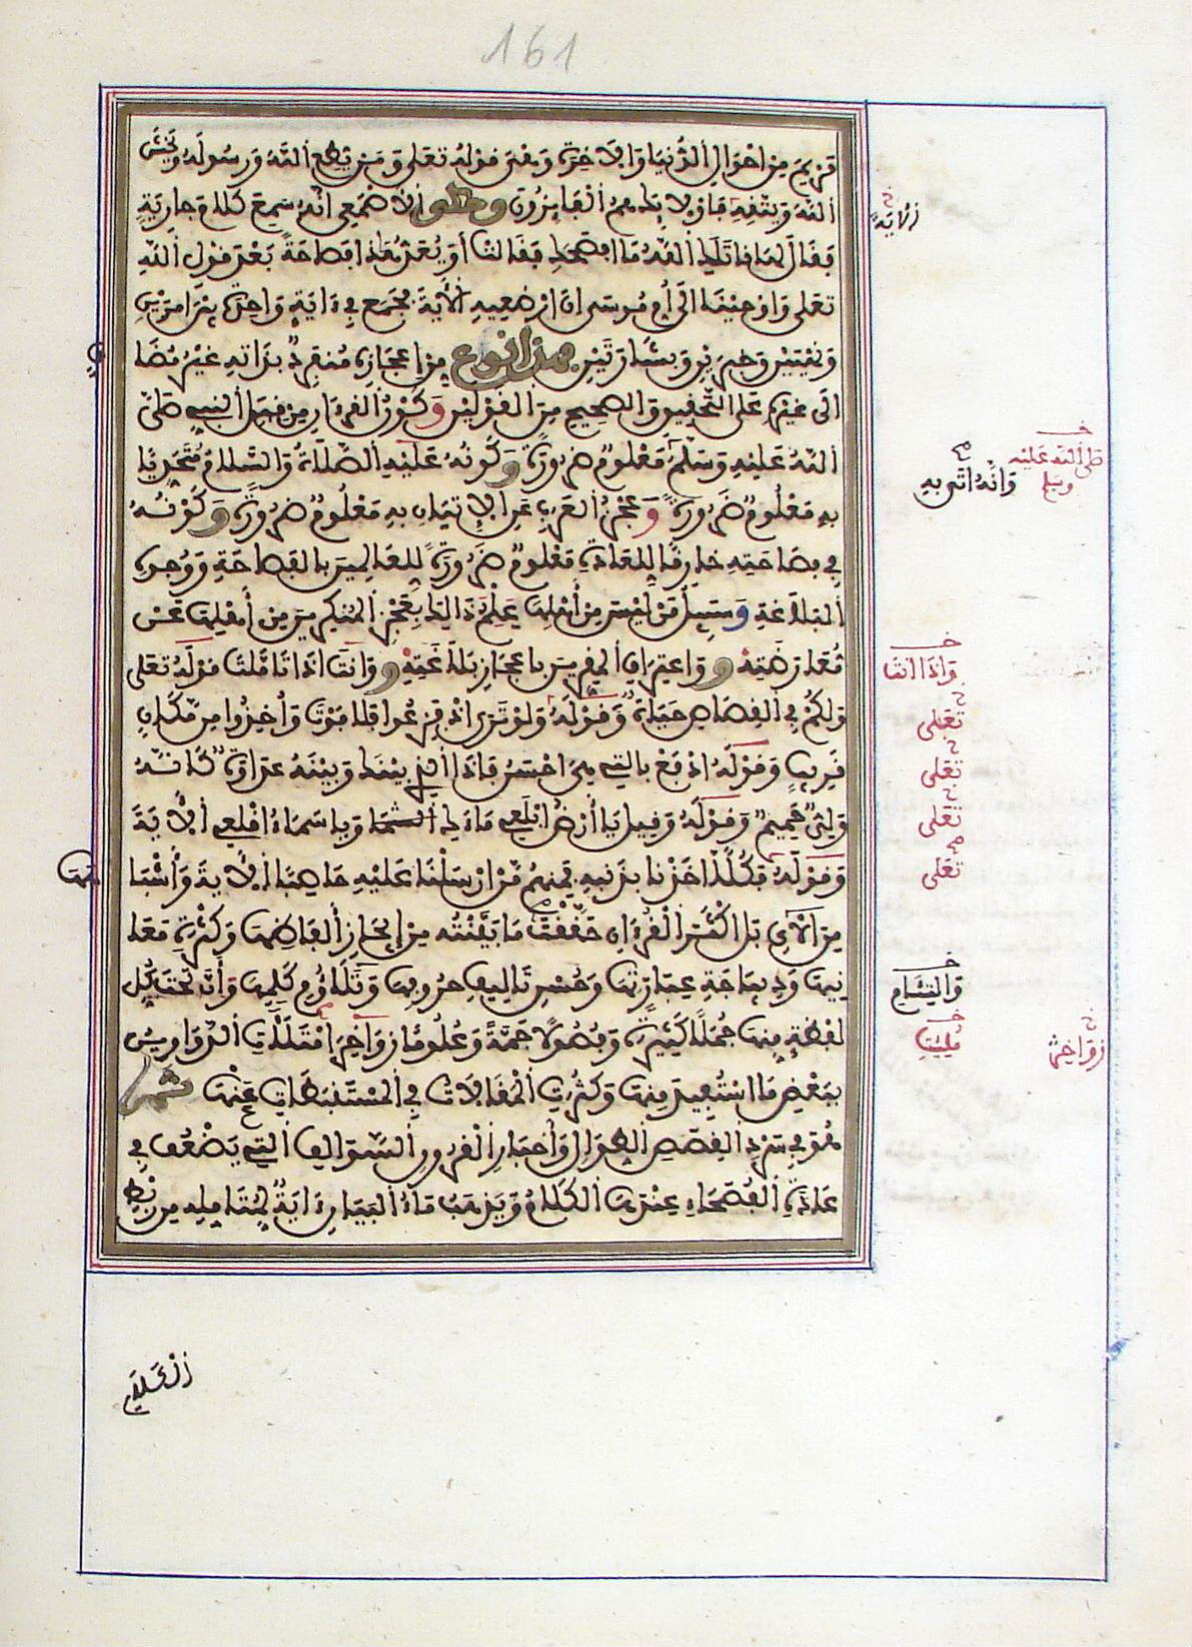 161
مَرْيَمَ مِنْ أَحْوَالِ الدُّنْيَا وَالْآخِرَةِ وَهِيَ قَوْلُهُ تَعَلَى وَمَنْ يُّطِعِ اللَّهَ وَرَسُولَهُ وَيَخْشَ
اللَّهَ وَيَتَّقِهِ فَأُوْلَئِكَ هُمُ الْفَائِزُونَ وحكى الْأَصْمَعِي أَنَّهُ سَمِعَ كَلَامَ جَارِيَةٍ
فَقَالَ لَهَا قَاتَلَكِ اللَّهُ مَا أَفْصَحَكِ فَقَالَتْ أَوَ يُعَدُّ هَذَا فَصَاحَةً بَعْدَ قَوْلِ اللَّهِ
تَعَلَى وَأَوْحَيْنَا إِلَى أُمِّ مُوسَى أَنْ أَرْضِعِيهِ الْآيَةَ فَجَمَعَ فِي ءَايَةٍ وَاحِدَةٍ بَيْنَ أَمْرَيْنِ
وَنَهْيَيْنِ وَخَبَرَيْنِ وَبِشَارَتَيْنِ فهذا نوع مِنْ إِعْجَازِهِ مُنْفَرِدٌ بِذَاتِهِ غَيْرُ مُضَافٍ
إِلَى غَيْرِهِ عَلَى التَّحْقِيقِ وَالصَّحِيحِ مِنَ الْقَوْلَيْنِ وَكَوْنُ الْقُرْءَانِ مِنْ قِبَلِ النَّبِيِّ صَلَّى
اللَّهُ عَلَيْهِ وَسَلَّمَ مَعْلُومٌ ضَرُورَةً وَكَوْنُهُ عَلَيْهِ الصَّلَاةُ وَالسَّلَامُ مُتَحَدِّيًا
بِهِ مَعْلُومٌ ضَرُورَةً وَعَجْزُ الْعَرَبِ عَنِ الْإِتْيَانِ بِهِ مَعْلُومٌ ضَرُورَةً وَكَوْنُهُ
فِي فَصَاحَتِهِ خَارِقًا لِلْعَادَةِ مَعْلُومٌ ضَرُورَةً لِلْعَالِمِينَ بِالْفَصَاحَةِ وَوُجُوهِ
الْبَلَاغَةِ وَسَبِيلُ مَنْ لَيْسَ مِنْ أَهْلِهَا عِلْمُ ذَالِكَ بِعَجْزِ الْمُنْكِرِينَ مِنْ أَهْلِهَا عَنْ
مُعَارَضَتِهِ وَاعْتِرَافِ الْمُقِرِّينَ بِإِعْجَازِ بَلَاغَتِهِ وَأَنْتَ إِذَا تَأَمَّلْتَ قَوْلَهُ تَعَلَى
وَلَكُمْ فِي الْقِصَاصِ حَيَاةٌ وَقَوْلَهُ وَلَوْ تَرَى إِذْ فَزِعُوا فَلَا فَوْتَ وَأُخِذُوا مِن مَّكَانٍ
قَرِيبٍ وَقَوْلَهُ ادْفَعْ بِالَّتِي هِيَ أَحْسَنُ فَإِذَا الَّذِي بَيْنَكَ وَبَيْنَهُ عَدَاوَةٌ كَأَنَّهُ
وَلِيٌّ حَمِيمٌ وَقَوْلَهُ وَقِيلَ يَا أَرْضُ ابْلَعِي مَاءَكِ وَيَا سَمَاءُ أَقْلِعِي الْآيَةَ
وَقَوْلَهُ فَكُلًّا أَخَذْنَا بِذَنْبِهِ فَمِنْهُم مَّنْ أَرْسَلْنَا عَلَيْهِ حَاصِبًا الْآيَةَ وَأَشْبَاهَهَا
مِنَ الْآيِ بَلْ أَكْثَرَ الْقُرْءَانِ حَقَّقْتَ مَا بَيَّنْتُهُ مِنْ إِيجَازِ أَلْفَاظِهَا وَكَثْرَةِ مَعَا
نِيهَا وَدِيبَاجَةِ عِبَارَتِهَا وَحُسْنِ تَالِيفِ حُرُوفِهَا وَتَلَاؤُمِ كَلِمِهَا وَأَنَّ تَحْتَ كُلِّ
لَفْظَةٍ مِنْهَا جُمَلًا كَثِيرَةً وَفُصُولًا جَمَّةً وَعُلُومًا زَوَاخِرَ امْتَلَأَتِ الدَّوَاوِينُ
بِبَعْضِ مَا اسْتُفِيدَ مِنْهَا وَكَثُرَتِ الْمَقَالَاتُ فِي الْمُسْتَنْبَطَاتِ عَنْهَا ثم
هُوَ فِي سَرْدِ الْقِصَصِ الطِّوَالِ وَأَخْبَارِ الْقُرُونِ السَّوَالِفِ الَّتِي يَضْعُفُ فِي
عَادَةِ الْفُصَحَاءِ عِنْدَهَا الْكَلَامُ وَيَذْهَبُ مَاءُ الْبَيَانِ ءَايَةٌ لِمُتَأَمِّلِهِ مِنْ رَبْطِ
صَلَّى اللَّهُ عَلَيْهِ
وسلم
وَأَنَّهُ أَتَى بِهِ
وَإِذَا أَنْتَ
تَعَلَى
تَعَلَى
تَعَلَى
تَعَلَى
وَالْتِئَامِ
مُلِئَتِ
زَوَاخِرَ
الْكَلَامِ